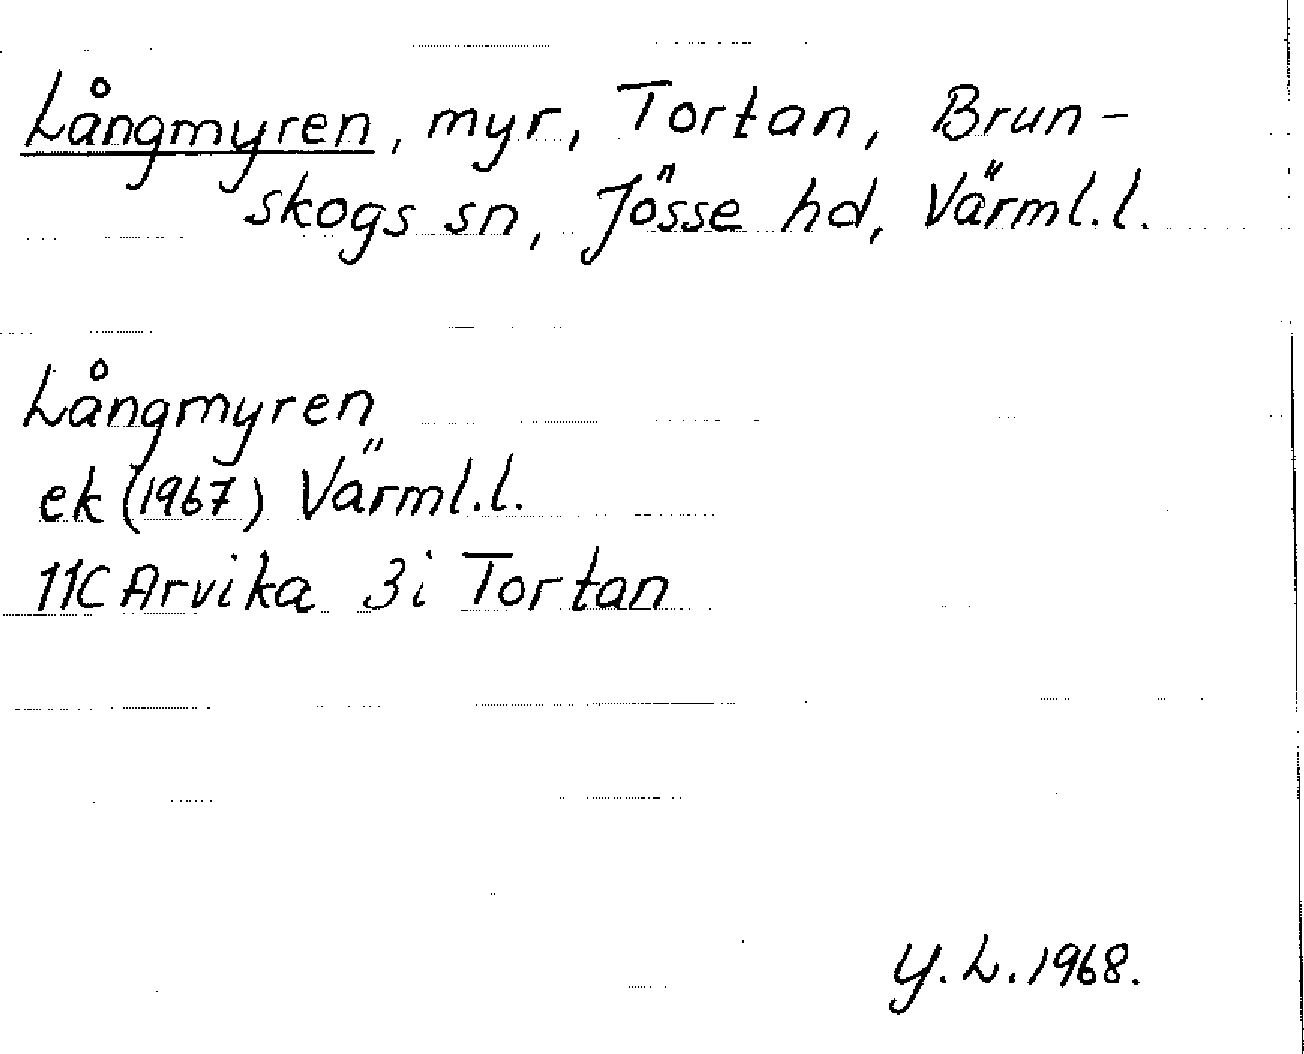 Långmyren, myr, Tortan, Brun-
skogs sn, Jösse hd, Värml.l.
Långmyren
ek (1967) Värml.l.
11C Arvika 3i Tortan
Y.L.1968.